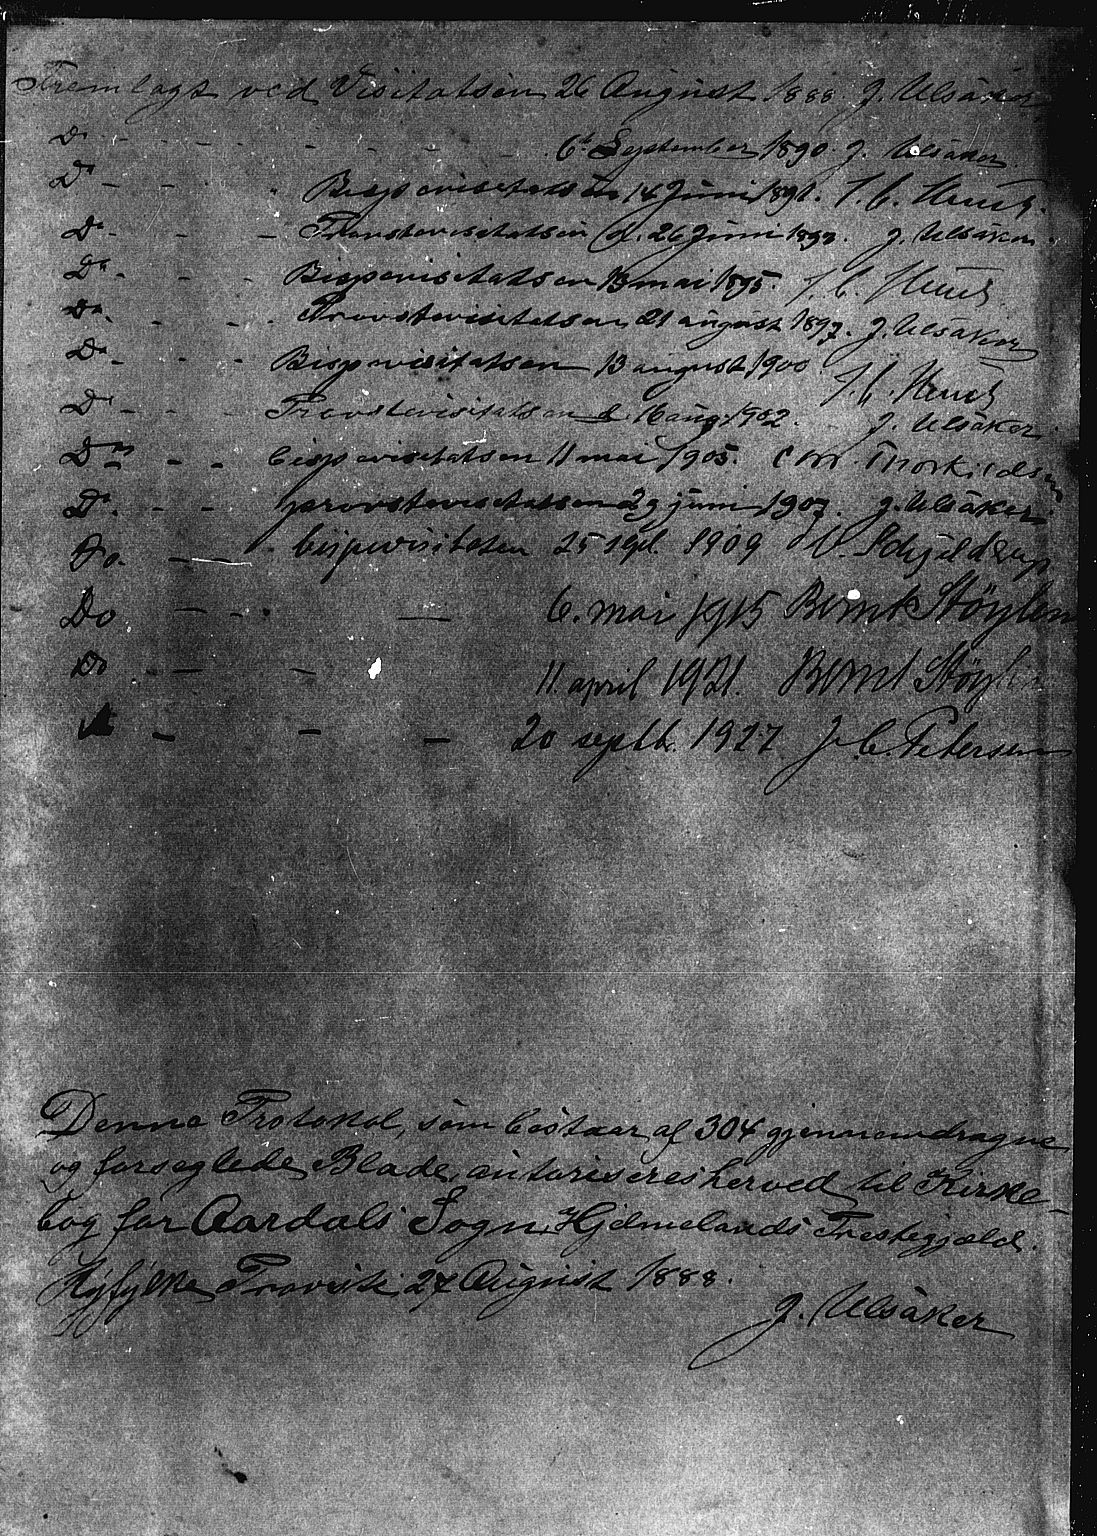 Fremlagt ved Visitatsen 26 August 1888 J. Ulsåker
Do - - - - - - - 6te September 1890. J. Ulsåker.
Do - - - Bispevisitatsen 14 Juni 1891. J. C. Heuch.
Do. - - Provstevisitatsen d. 26 Juni 1893. J. Ulsåker.
Do. - - Bispevisitatsen 13 mai 1895. J. C. Heuch.
Do. - - - Provstevisitatsen 21 august 1897. J. Ulsåker
Do. - - Bispevisitatsen 13 august 1900 J. C. Heuch
Do - - - Provstevisitatsen d. 16 aug. 1902. J. Ulsåker
Do - - bispevisitatsen 11 mai 1905. Chr. Thorkildsen
Do. - - provstevisitatsen 29 juni 1907. J. Ulsåker
Do. - bispevisitatsen 25 sept. 1909 Schjelderup
Do - - - 6. mai 1915 Bernt Støylen
Do - - - 11. april 1921. Bernt Støylen
- - - 20 septb. 1927 J. C. Petersen
Denne Protokol, som bestaar af 304 gjennemdragne
og forseglede Blade, autoriseres herved til Kirke-
bog for Aardals Sogn, Hjelmelands Prestegjæld.
Ryfylke Provsti 27 August 1888.
J. Ulsåker